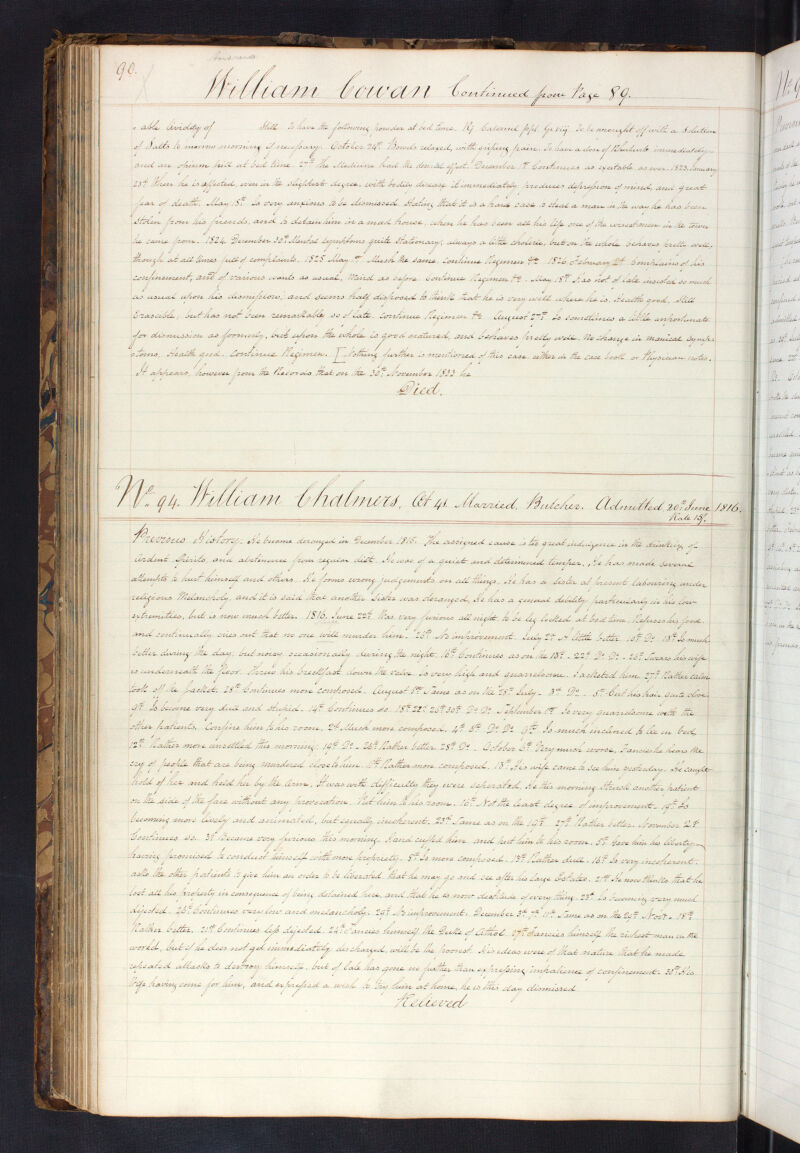 90.
William Cowan Continued from Page 89.
able lividity of Still To have the following powder at bed time. Calomel ppt. Gr viij. To be wrought off with a Solution
of Salts to morrow morning if necessary. October 24th. Bowels relaxed, with griping pain. To have a dose of Rhubarb immediately
and an opium pill at bed time. 27th The Medicine had the desired effect. December 1st Continues as excitable as ever. 1823 January
28th When he is affected, even in the slightest degree, with bodily disease it immediately produces depression of mind, and great
fear of death. May 8th Is very anxious to be dismissed. Stating that it is a hard case to steal a man in the way he has been
stolen from his friends, and to detain him in a mad house, when he has been all his life one of the wisest men in the town
he came from. 1824 December 30th Mental symptoms quite stationary, always a little choleric, but on the whole behaves pretty well,
though at all times full of complaints. 1825 May 1st Much the same. Continue Regimen &c. 1826 February 2d Complains of his
confinement, and of various wants as usual, Mind as before. Continue Regimen &c. May 18th Has not of late insisted so much
as usual upon his dismission, and seems half disposed to think that he is very well where he is. Health good. Still
irascible, but has not been remarkably so of late. Continue Regimen &c. August 27th Is sometimes a little importunate
for dismission as formerly, but upon the whole is good natured, and behaves pretty well. No change in maniacal symp-
toms. Health good. Continue Regimen. [Nothing further is mentioned of this case either in the case book or Physician notes.
It appears, however from the Records that on the 30th November 1833 he
Died.
No. 94. William Chalmers. Æt 41. Married, Butcher. Admitted 20th June 1816.
Rate 15/.
Previous History. He became deranged in December 1815. The assigned cause is too great indulgence in the drinking of
Ardent Spirits, and abstinence from regular diet. He was of a quiet and determined temper. He has made several
attempts to hurt himself and others. He forms wrong judgements on all things. He has a sister at present labouring under
religious Melancholy, and it is said that another Sister was deranged. He has a general debility particularly in his low
extremities, but is now much better. 1816. June 22d. Was very furious all night. to be leg locked at bed time. Refuses his food
and continually cries out that no one will murder him. 25th No improvement. July 2d A little better. 10th Do. 18th Is much
better during the day, but noisy occasionally during the night. 19th Continues as on the 18th. 22d Do. Do. 26th Swears his wife
is underneath the floor. Throws his breakfast down the valve. Is very high and quarrelsome. Jacketed him. 27th Rather calm
took off the Jacket. 28th Continues more composed. August 1st Same as on the 28th July. 3d Do. 5th Cut his hair quite close
9th Is become very dull and stupid. 14th Continues so. Do Do. September 1st Is very quarrelsome with the
other patients. Confine him to his room. 2d Much more composed. 4th 6th Do Do 9th Is much inclined to lie in bed.
12th Rather more unsettled this morning. 19th Do. 26th Rather better. 28th Do. October 3d Very much worse. Fancies he hears the
cry of people that are being murdered close to him. Rather more composed. 13th His wife came to see him yesterday. He caught
hold of her and held her by the arm. It was with difficulty they were separated. He this morning struck another patient
on the side of the face without any provocation. Put him to his room. 16th Not the least degree of improvement. 19th Is
becoming more lively and animated, but equally incoherent. 23d Same as on the 19th. 27th Rather better. November 2d
Continues so. 3d Became very furious this morning. Hand cuff'd him and put him to his room. 5th Gave him his liberty
having promised to conduct himself with more propriety. 8th Is more composed. 13th Rather dull. 16th Is very incoherent.
asks the other patients to give him an order to be liberated that he may go and see after his large Estates. 21st He now thinks that he
lost all his property in consequence of being detained here, and that he is now destitute of every thing. 23d Is becoming very much
dejected. 26th Continues very low and melancholy. 29th No improvement. December 3d 7th 11th Same as on the 29th Novr. 18th
Rather better. 21st Continues less dejected. 24th Fancies himself the Duke of Athol. 27th Fancies himself the richest man in the
world, but if he does not get immediately discharged, will be the poorest. His ideas were of that nature that he made
repeated attacks to destroy himself, but of late has gone no further than expressing impatience of confinement. 28th His
Wife having come for him, and expressed a wish to try him at home, he is this day dismissed
Relieved